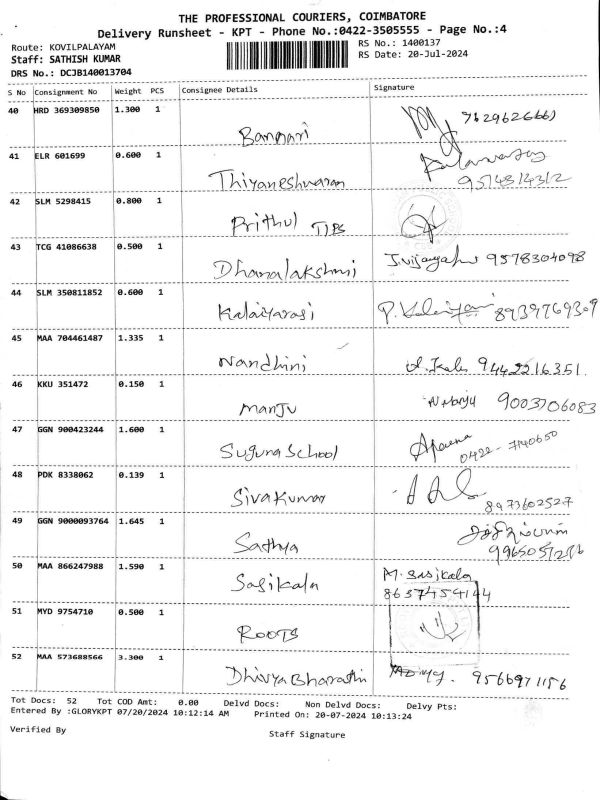 THE PROFESSIONAL COURIERS, COIMBATORE
Delivery Runsheet - KPT - Phone No.:0422-3505555 - Page No.:4
Route: KOVILPALAYAM RS No.: 1400137
Staff: SATHISH KUMAR RS Date: 20-Jul-2024
DRS No.: DCJB140013704
S No Consignment No Weight PCS Consignee Details Signature
40 HRD 369309850 1.300 1
Bannari
41 ELR 601699 0.600 1
Thiyaneshwaran 9514814312
42 SLM 5298415 0.800 1
Prithul TIPS
43 TCG 41086638 0.500 1
Dhanalakshmi 9578304098
44 SLM 350811852 0.600 1
Kalaiyarasi 8939769309
45 MAA 704461487 1.335 1
Nandhini 9442216351
46 KKU 351472 0.150 1
Manju 9003706083
47 GGN 900423244 1.600 1
Suguna School 0422-7140650
48 PDK 8338062 0.139 1
Sivakumar 8973602527
49 GGN 9000093764 1.645 1
Sathya
50 MAA 866247988 1.590 1 M. Sasikala
Sasikala
51 MYD 9754710 0.500 1
ROOTS
52 MAA 573688566 3.300 1
Dhivya Bharathi 9566971156
Tot Docs: 52 Tot COD Amt: 0.00 Delvd Docs: Non Delvd Docs: Delvy Pts:
Entered By :GLORYKPT 07/20/2024 10:12:14 AM Printed On: 20-07-2024 10:13:24
Verified By Staff Signature